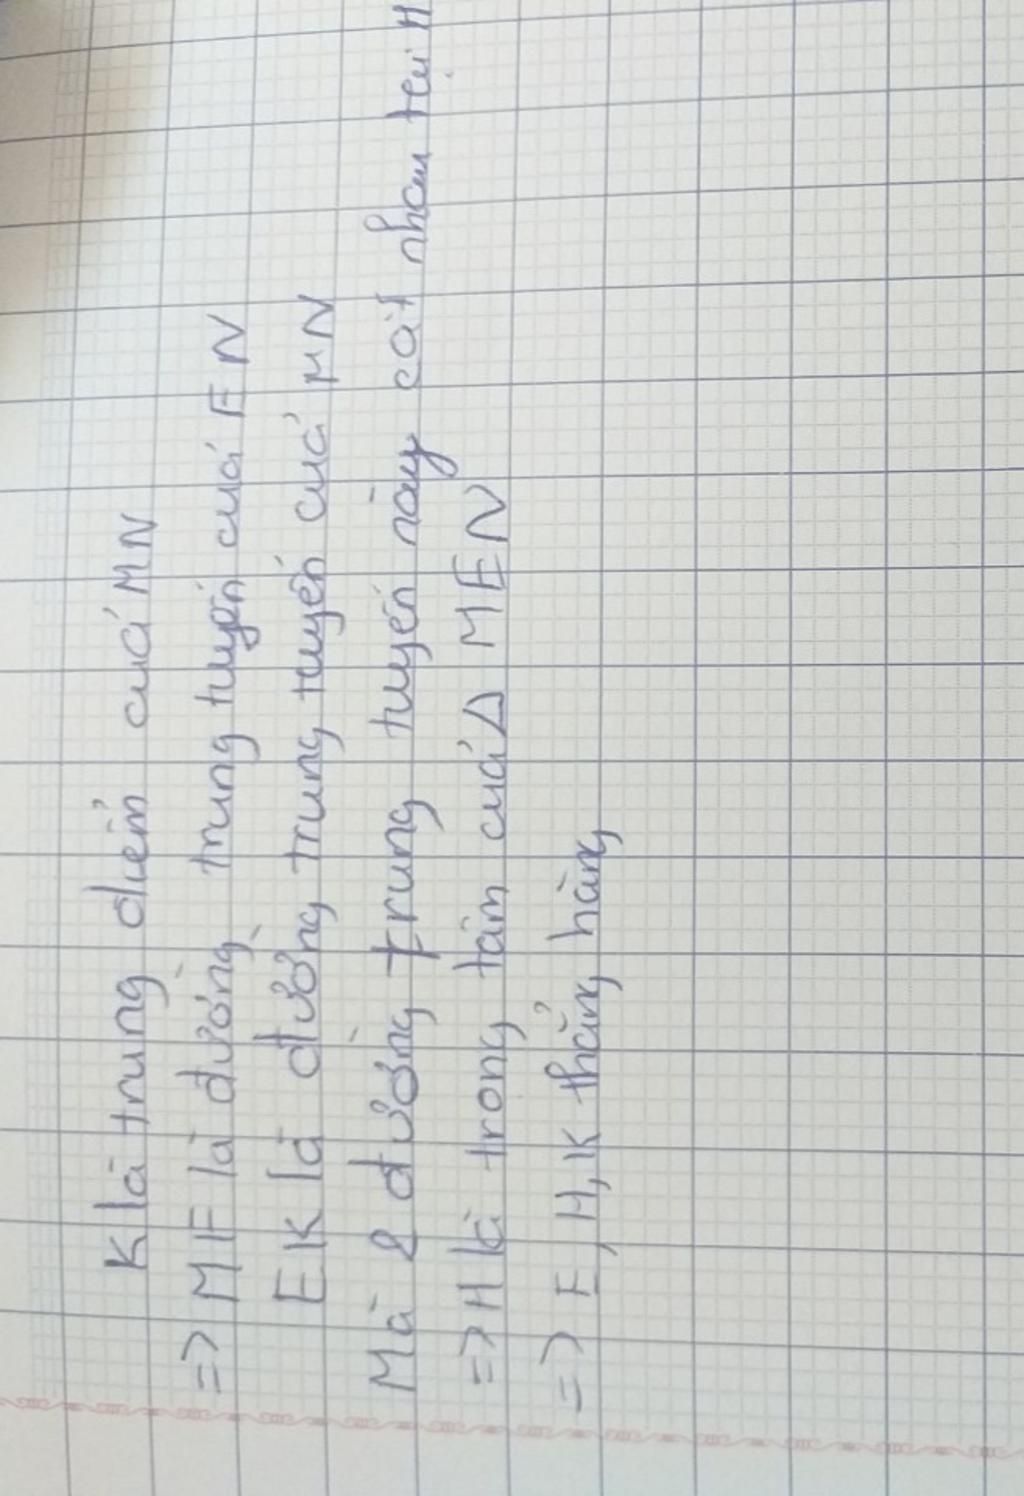 K là trung điểm của MN
=> MF là đường trung tuyến của EN
EK là đường trung tuyến của MN
Mà 2 đường trung tuyến này cắt nhau tại H
=> H là trọng tâm của Δ MEN
=> E, H, K thẳng hàng